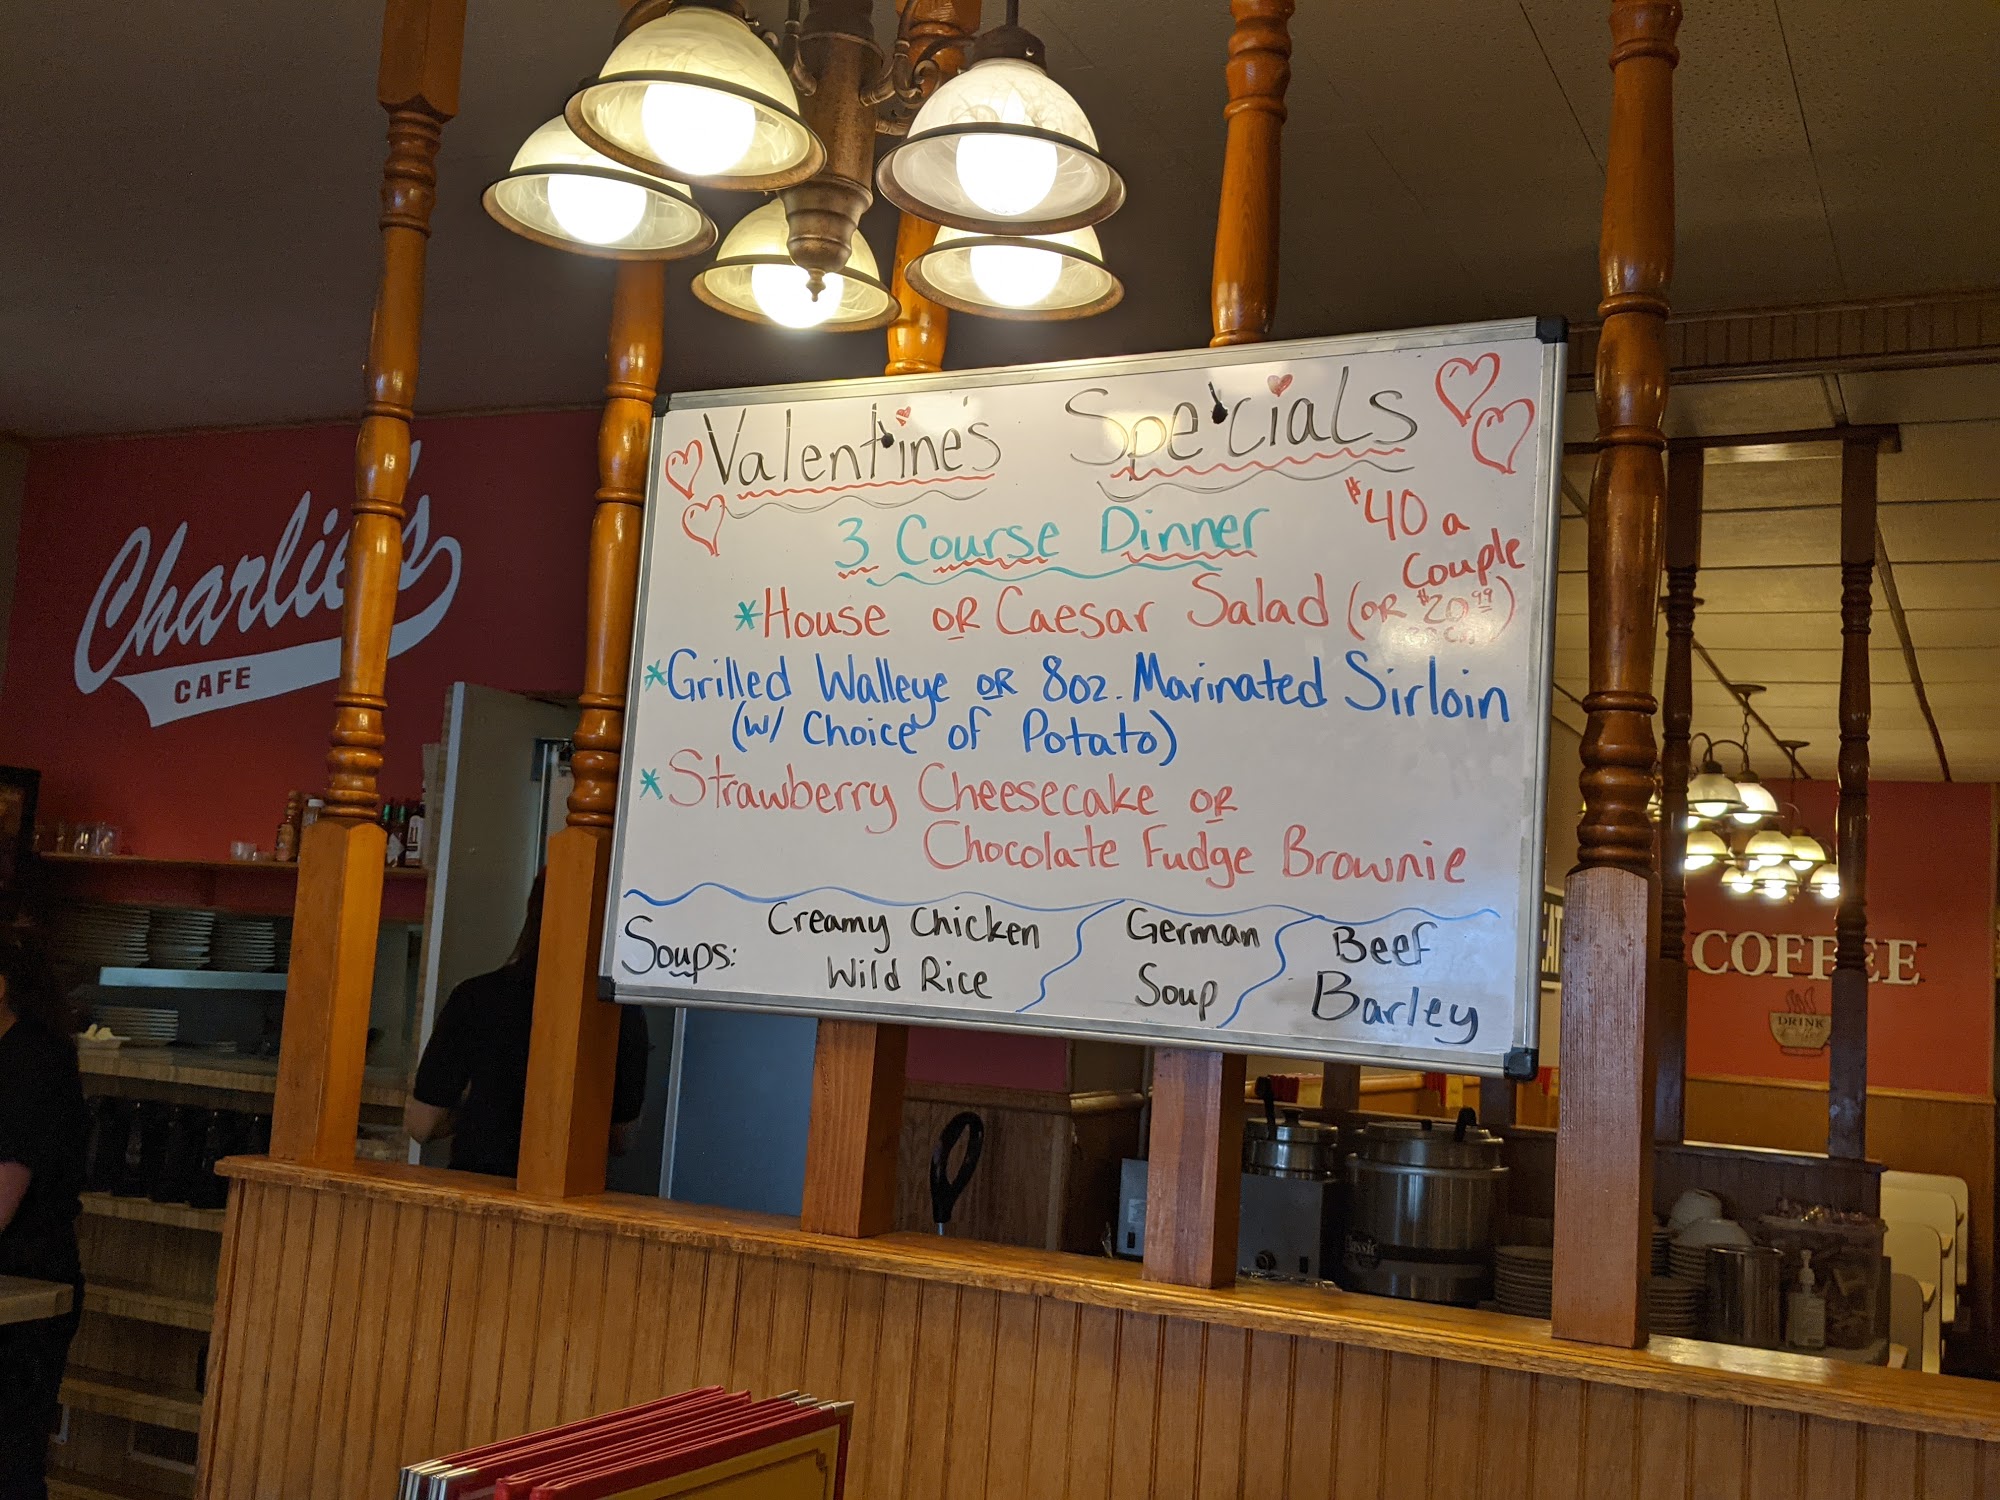 Charlie's
CAFE
Valentine's Specials
3 Course Dinner
$40 a
Couple
*House OR Caesar Salad (OR $20.99
*Grilled Walleye OR 8oz. Marinated Sirloin
(w/ Choice of Potato)
*Strawberry Cheesecake OR
Chocolate Fudge Brownie
Soups:
Creamy Chicken
Wild Rice
German
Soup
Beef
Barley
COFFEE
DRINK
Classic